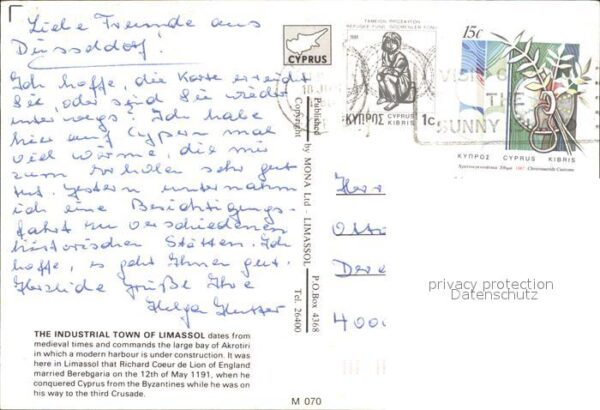 Liebe Freunde aus
Düsseldorf!
Ich hoffe, die Karte erreicht
Sie, oder sind Sie wieder
unterwegs? Ich habe
hier auf Cypern mal
viel Wärme, die mir
zum Erholen sehr gut
tut. Gestern unternahm
ich eine Besichtigungs-
fahrt zu verschiedenen
historischen Stätten. Ich
hoffe, es geht Ihnen gut.
Herzliche Grüße Ihre
Helga
THE INDUSTRIAL TOWN OF LIMASSOL dates from
medieval times and commands the large bay of Akrotiri
in which a modern harbour is under construction. It was
here in Limassol that Richard Coeur de Lion of England
married Berebgaria on the 12th of May 1191, when he
conquered Cyprus from the Byzantines while he was on
his way to the third Crusade.
CYPRUS
Published by MONA Ltd - LIMASSOL P.O.Box 4368
Copyright Tel. 26400
M 070
REFUGEE FUND
ΚΥΠΡΟΣ CYPRUS KIBRIS 1c
15c
ΚΥΠΡΟΣ CYPRUS KIBRIS
1987
VISIT
THE
SUNNY
Herr
Otto
4000
privacy protection
Datenschutz